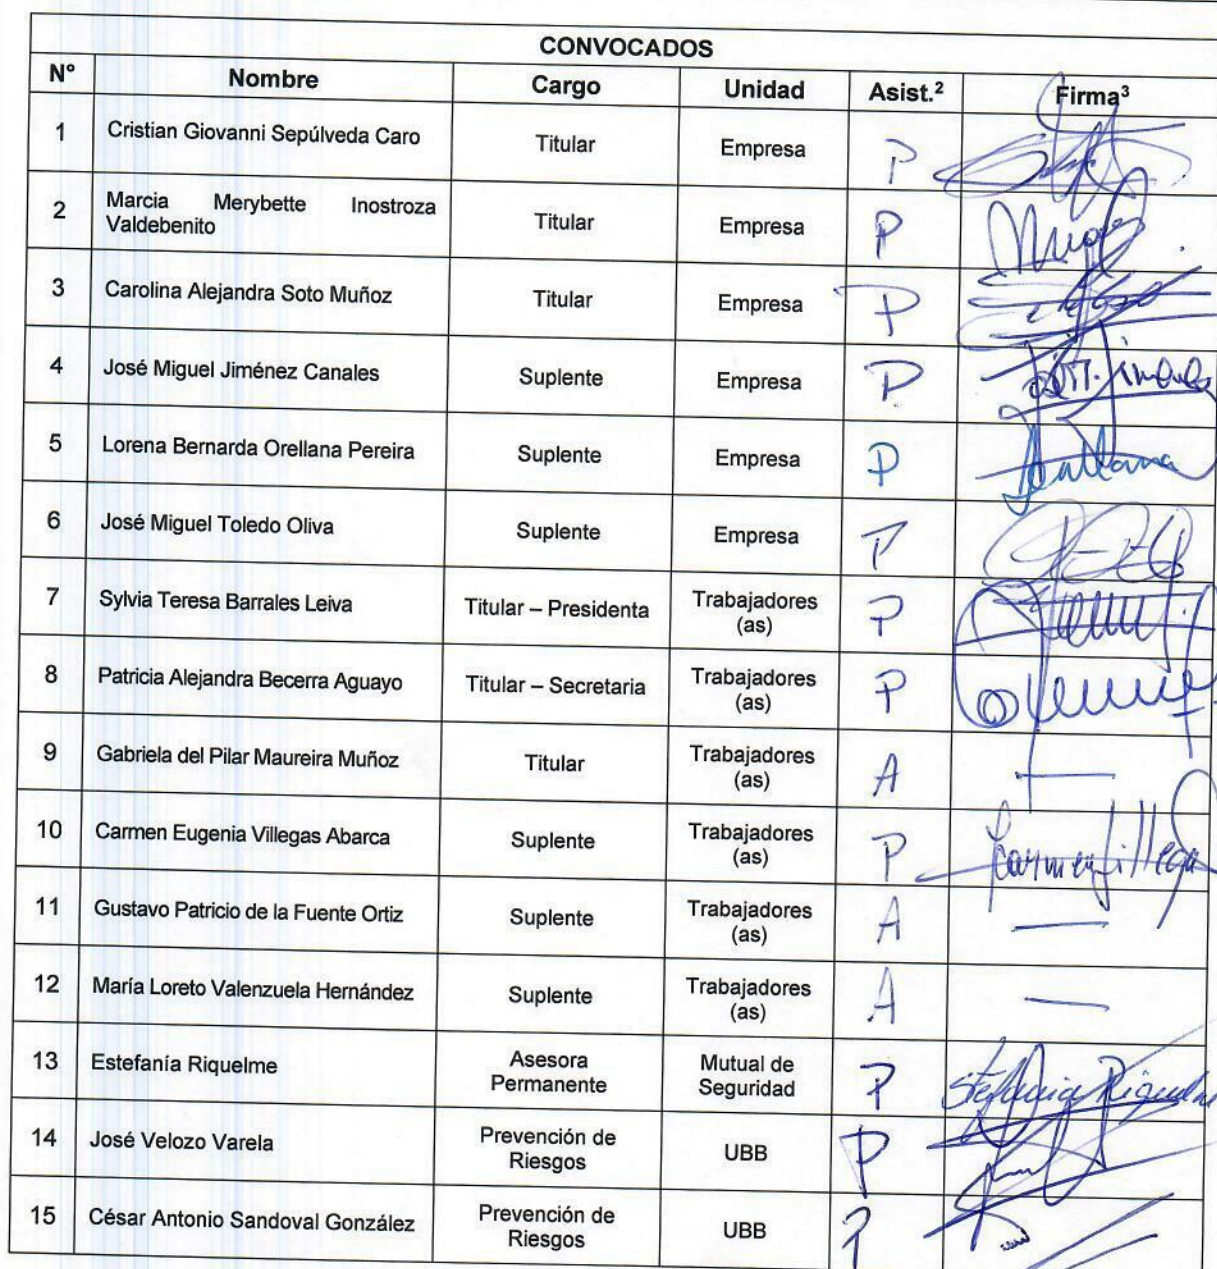 CONVOCADOS
N° Nombre Cargo Unidad Asist.² Firma³
1 Cristian Giovanni Sepúlveda Caro Titular Empresa P
2 Marcia Merybette Inostroza Valdebenito Titular Empresa P
3 Carolina Alejandra Soto Muñoz Titular Empresa P
4 José Miguel Jiménez Canales Suplente Empresa P
5 Lorena Bernarda Orellana Pereira Suplente Empresa P
6 José Miguel Toledo Oliva Suplente Empresa P
7 Sylvia Teresa Barrales Leiva Titular – Presidenta Trabajadores (as) P
8 Patricia Alejandra Becerra Aguayo Titular – Secretaria Trabajadores (as) P
9 Gabriela del Pilar Maureira Muñoz Titular Trabajadores (as) A —
10 Carmen Eugenia Villegas Abarca Suplente Trabajadores (as) P
11 Gustavo Patricio de la Fuente Ortiz Suplente Trabajadores (as) A —
12 María Loreto Valenzuela Hernández Suplente Trabajadores (as) A —
13 Estefanía Riquelme Asesora Permanente Mutual de Seguridad P
14 José Velozo Varela Prevención de Riesgos UBB P
15 César Antonio Sandoval González Prevención de Riesgos UBB P